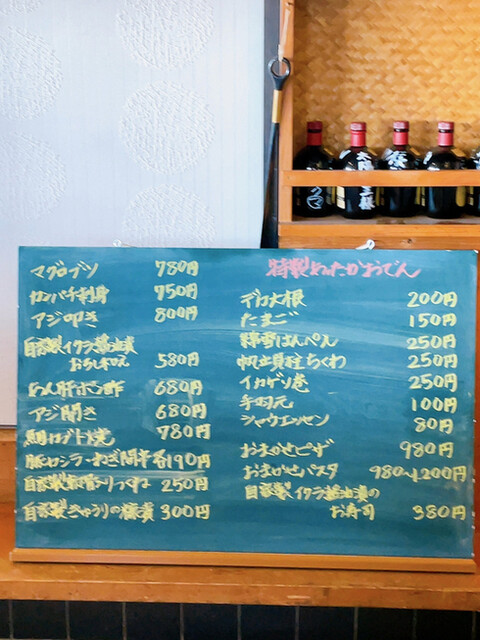 マグロブツ 780円
カンパチ刺身 750円
アジ叩き 800円
自家製イクラ醤油漬
おろし和え 580円
あん肝ポン酢 680円
アジ開き 680円
780円
豚 ねぎ間 各190円
自家製 つくね 250円
自家製きゅうりの 漬 300円
特製 おでん
デカ大根 200円
たまご 150円
はんぺん 250円
帆立貝柱ちくわ 250円
イカゲソ巻 250円
100円
シャウエッセン 80円
おまかせピザ 980円
おまかせパスタ 980〜1,200円
自家製イクラ醤油漬の
お寿司 380円